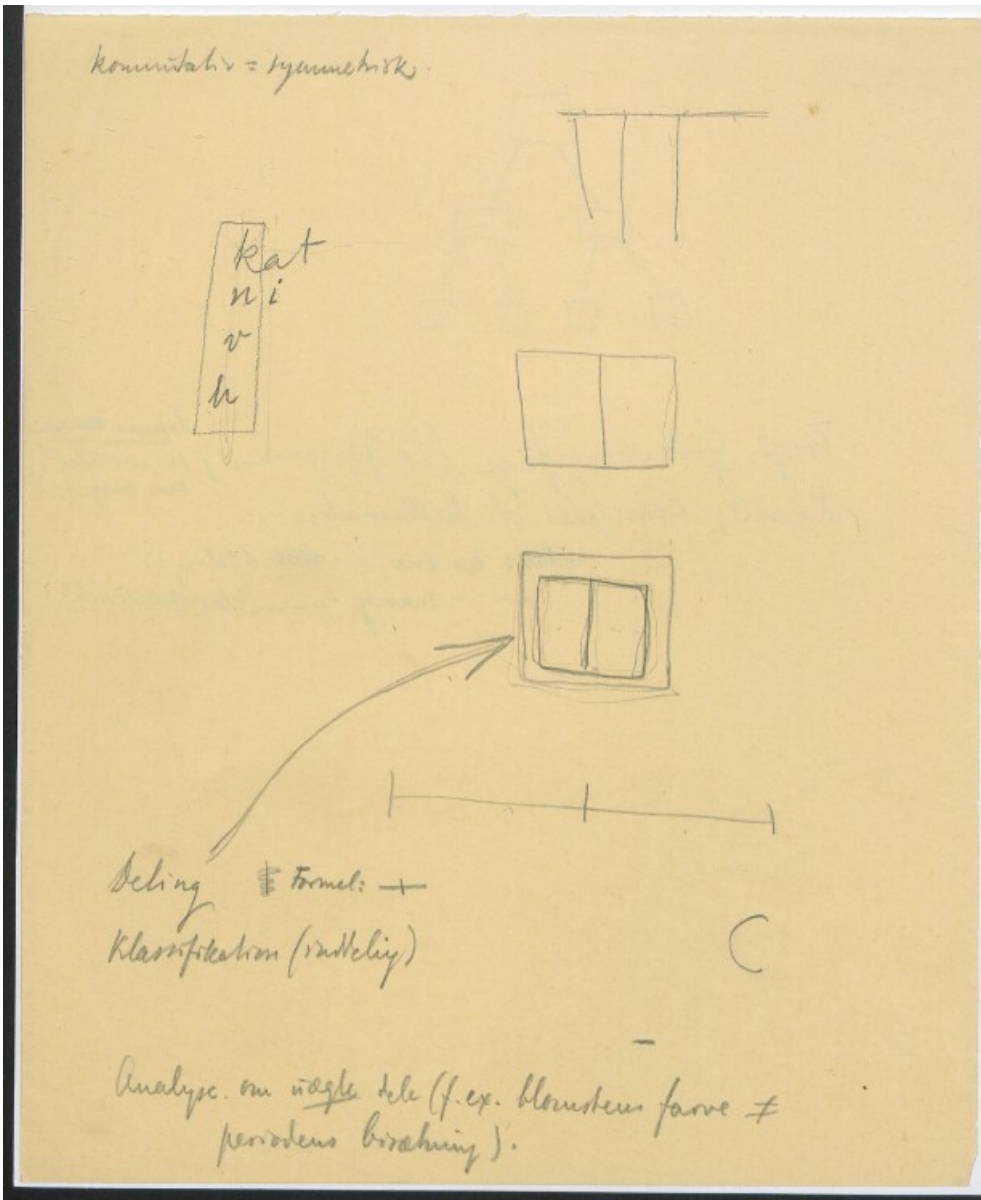 kommutativ = symmetrisk.
kat
n i
v
h
Deling Formel:
Klassifikation (inddeling)
Analyse. om uægte dele (f. ex. blomstens farve ≠
periodens bisætning).